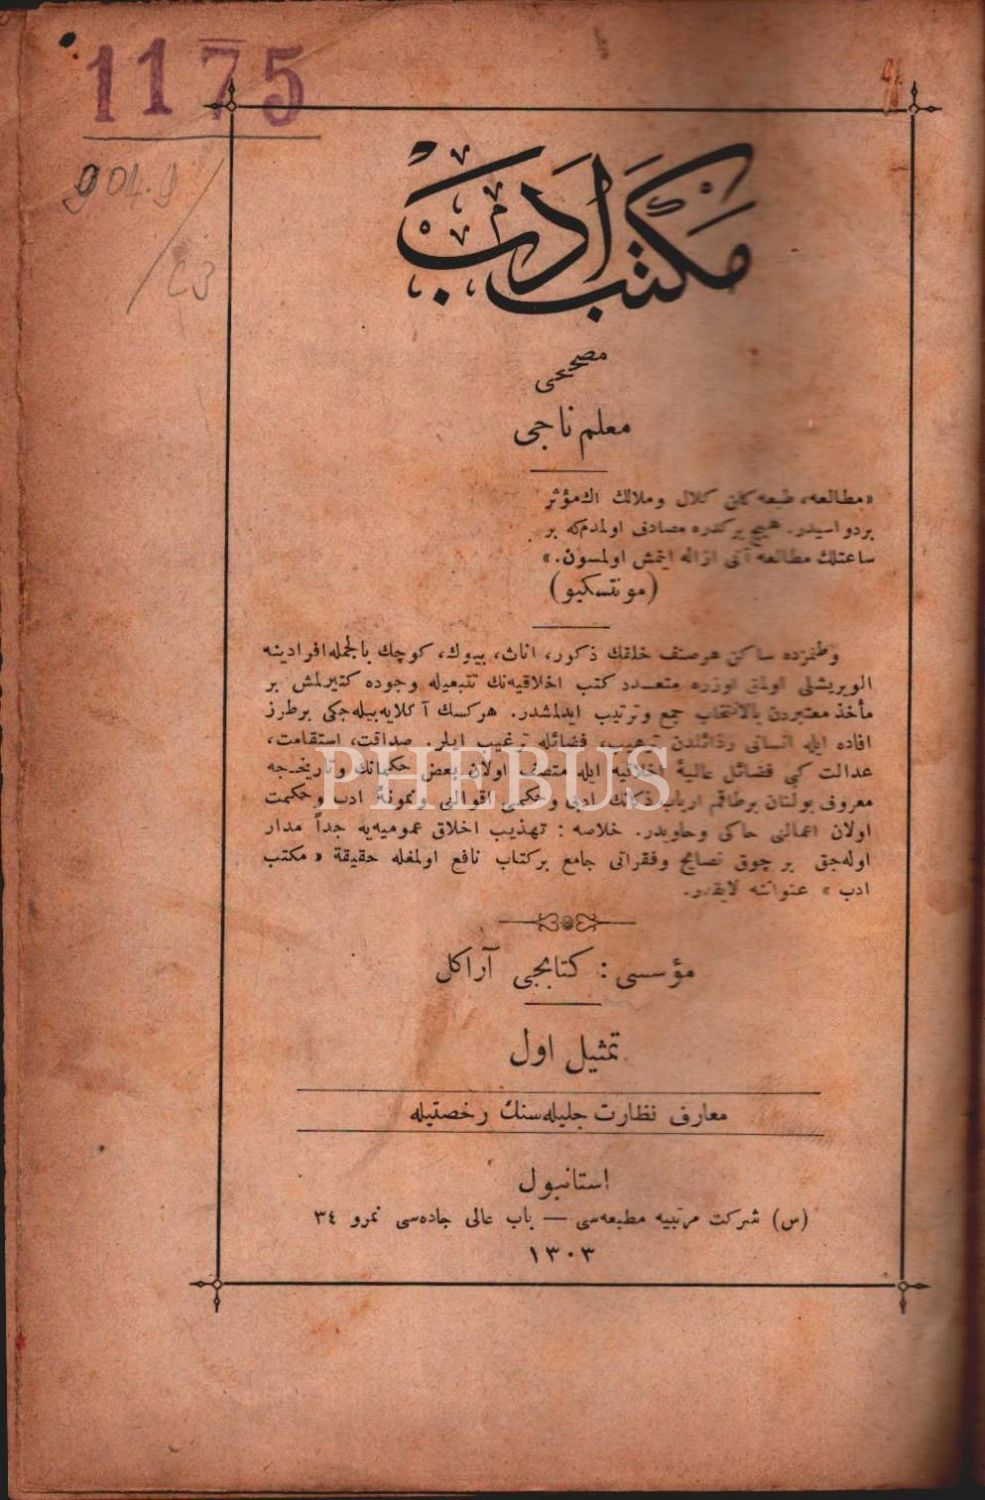 1175
904.9
مكتب ادب
مصححی
معلم ناجی
«مطالعه، طبعه كلن كلال وملالك اك مؤثر
بر دواسیدر. هیچ بر كدره مصادف اولمدم كه بر
ساعتلك مطالعه آنی ازاله ایتمش اولمسون.»
(مونتسكیو)
وطنمزده ساكن هر صنف خلقك ذكور، اناث، بیوك، كوچك بالجمله افرادینه
الویریشلی اولمق اوزره متعدد كتب اخلاقیه‌نك تتبعیله وجوده كتیرلمش بر
مأخذ معتبردن بالانتخاب جمع وترتیب ایدلمشدر. هركسك آكلایه‌بیله‌جكی بر طرز
افاده ایله انسانی رذائلدن ترهیب، فضائله ترغیب ایلر. صداقت، استقامت،
عدالت كبی فضائل عالیهٔ اخلاقیه ایله متصف اولان بعض حكمانك وتاریخجه
معروف بولنان بر طاقم ارباب ذكانك ادبی وحكمی اقوالی ونمونهٔ ادب وحكمت
اولان اعمالنی حاكی وحاویدر. خلاصه : تهذیب اخلاق عمومیه‌یه جداً مدار
اوله‌جق بر چوق نصایح وفقراتی جامع بر كتاب نافع اولمغله حقیقة «مكتب
ادب» عنواننه لایقدر.
PHEBUS
مؤسسی : كتابجی آراكل
تمثیل اول
معارف نظارت جلیله‌سنك رخصتیله
استانبول
(س) شركت مرتبیه مطبعه‌سی — باب عالی جاده‌سی نمرو ٣٤
١٣٠٣